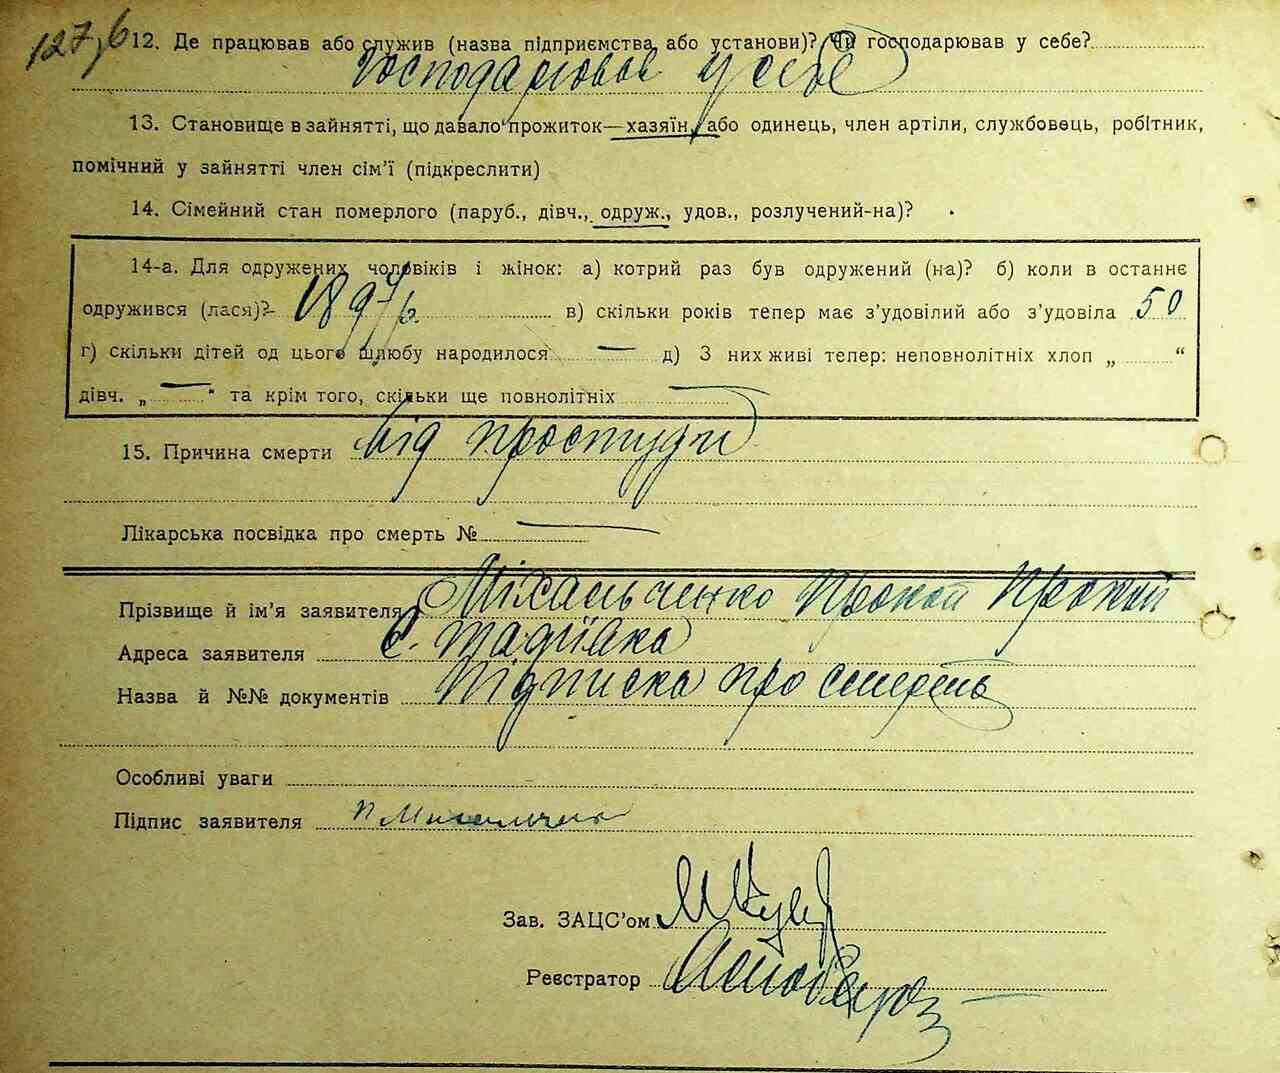 127/6 12. Де працював або служив (назва підприємства або установи)? Чи господарював у себе?
Господарював у себе
13. Становище в зайнятті, що давало прожиток—хазяїн, або одинець, член артіли, службовець, робітник,
помічний у зайнятті член сім'ї (підкреслити)
14. Сімейний стан померлого (паруб., дівч., одруж., удов., розлучений-на)?
14-а. Для одружених чоловіків і жінок: а) котрий раз був одружений (на)? б) коли в останнє
одружився (лася)?- 1897 р. в) скільки років тепер має з'удовілий або з'удовіла 50
г) скільки дітей од цього шлюбу народилося — д) З них живі тепер: неповнолітніх хлоп „ “
дівч. „ — “ та крім того, скільки ще повнолітніх —
15. Причина смерти від простуди
Лікарська посвідка про смерть № —
Прізвище й ім'я заявителя Міхальченко Прокоп Прокоп
Адреса заявителя с. Тадіївка
Назва й №№ документів Підписка про смерть
Особливі уваги
Підпис заявителя П Михальченко
Зав. ЗАЦС'ом
Реєстратор